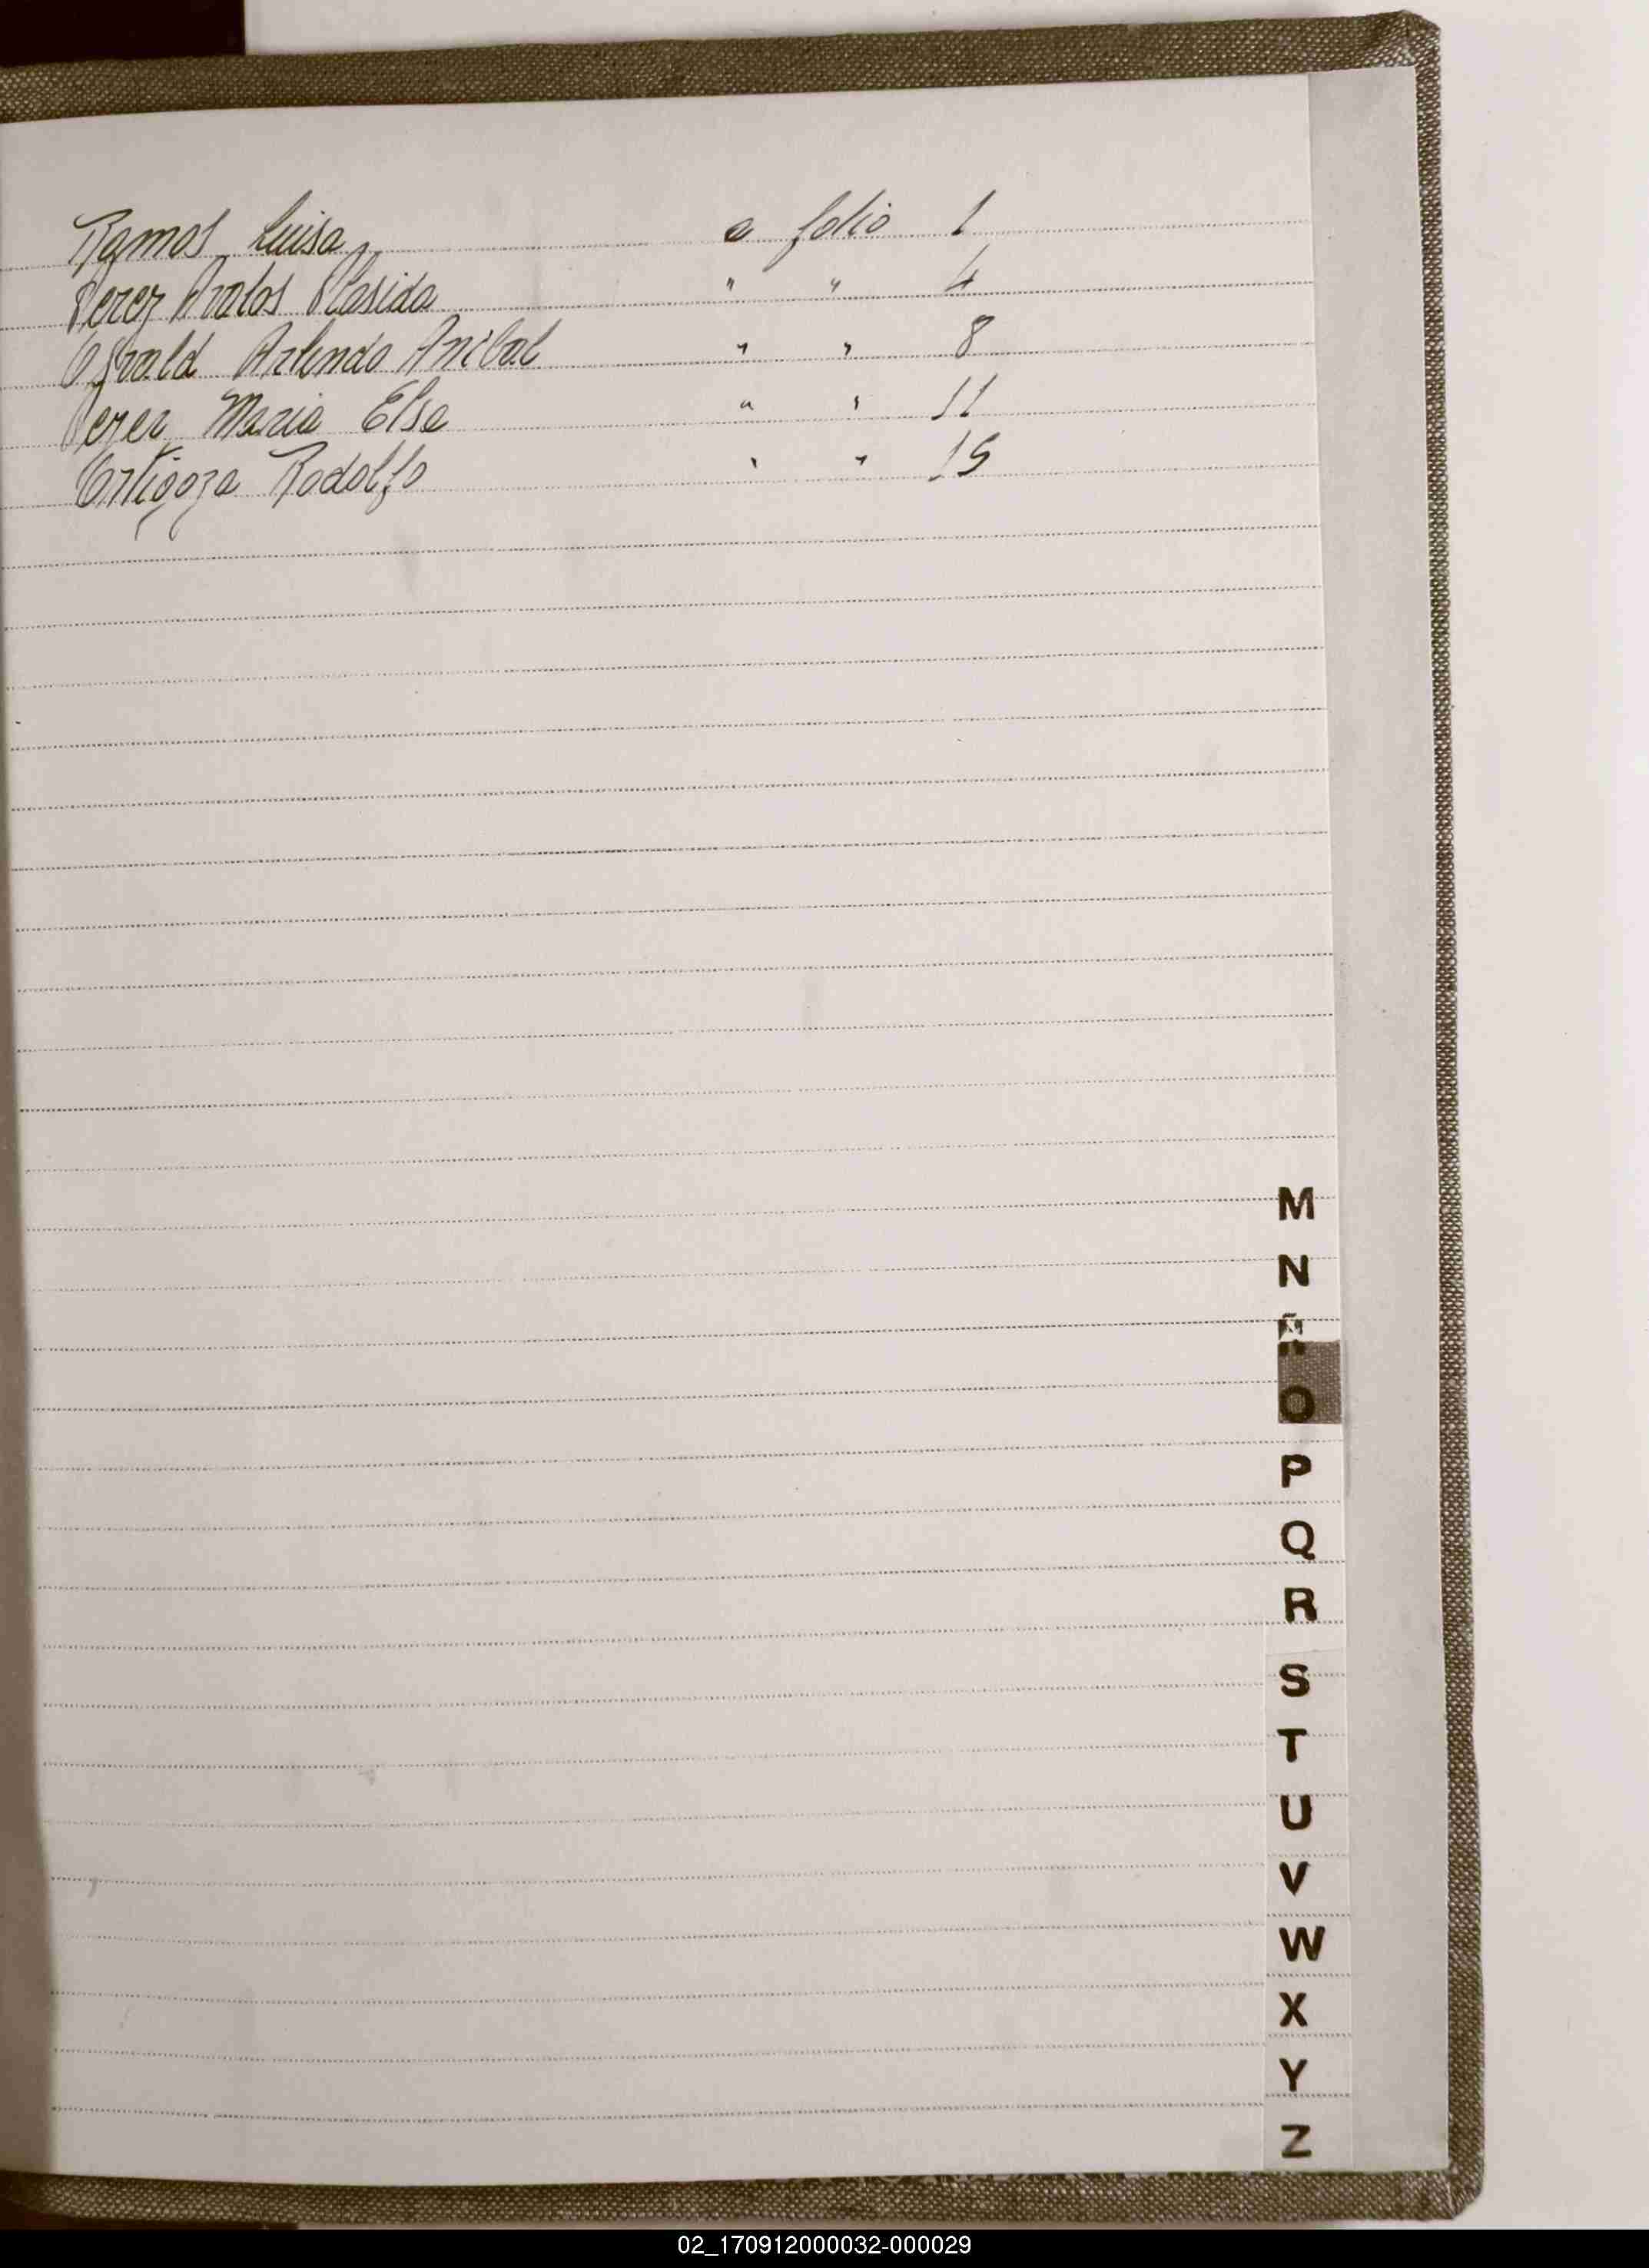 Ramos Luisa a folio 1
Perez Avalos Plasida " " 4
Osvald Arlindo Anibal " " 8
Perez Maria Elsa " " 11
Ortigoza Rodolfo " " 15
M
N
Ñ
O
P
Q
R
S
T
U
V
W
X
Y
Z
02_170912000032-000029